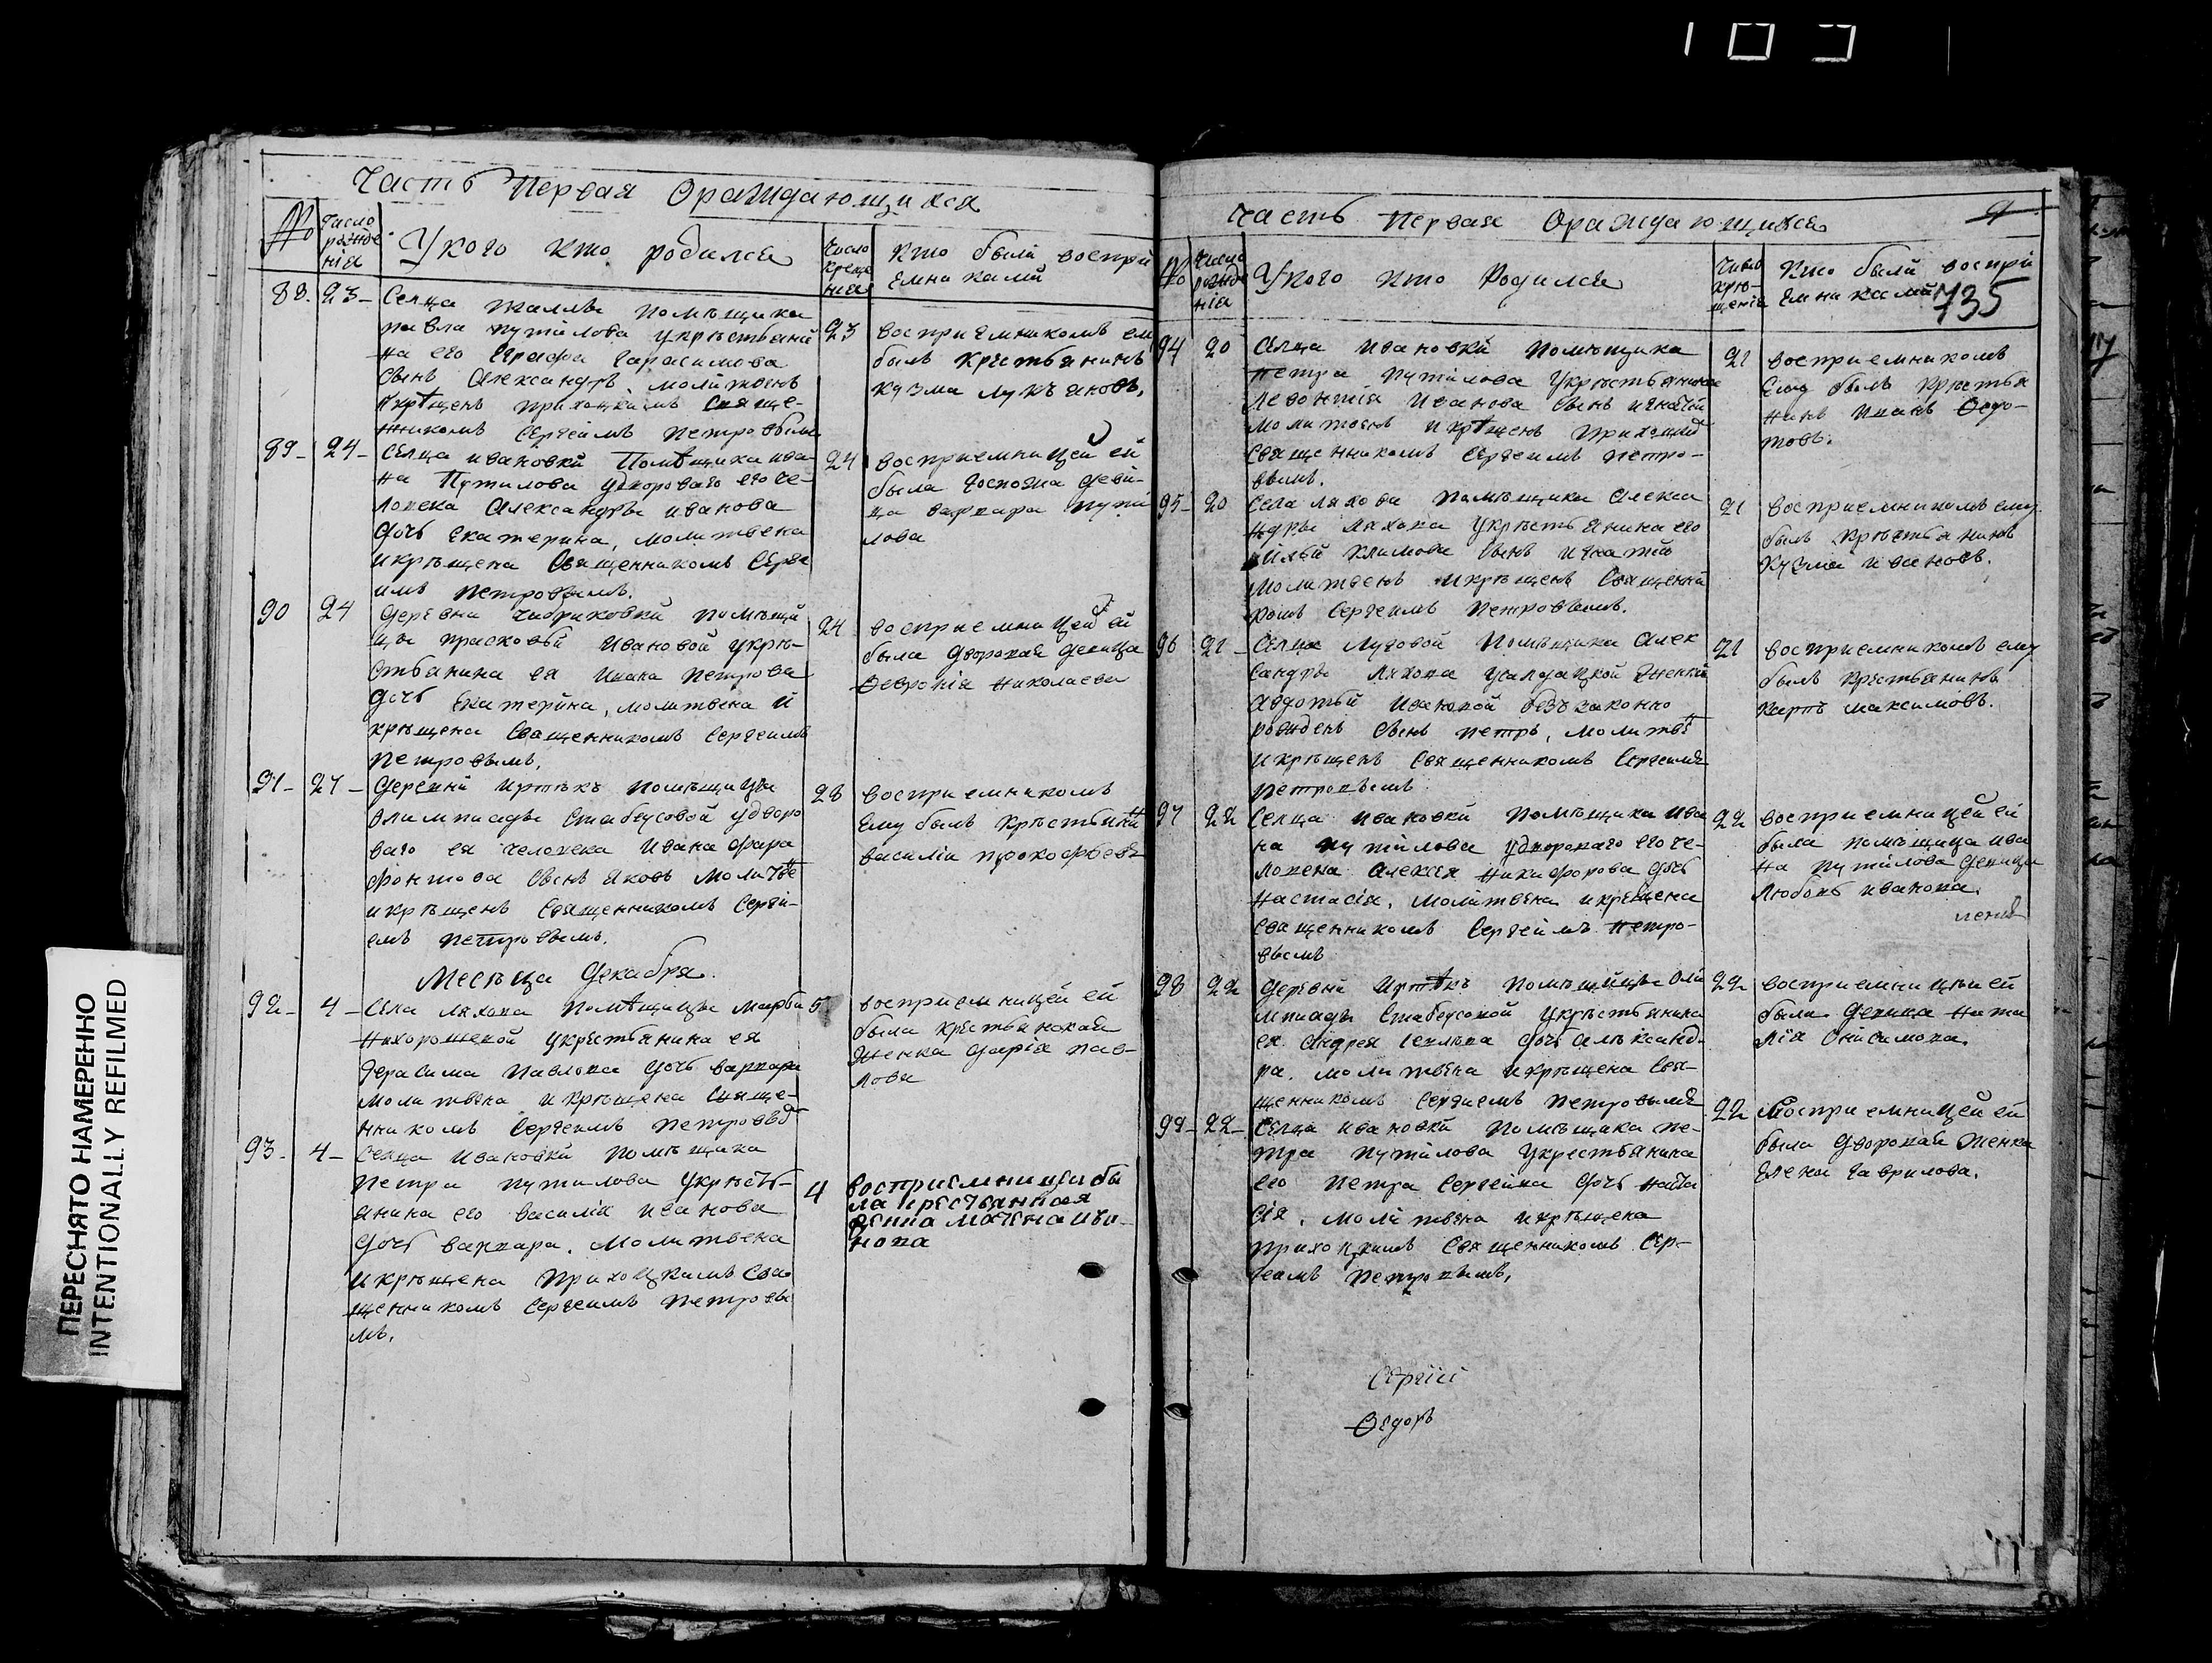 Часть Первая Ораждающихся
№
Число рожде нія
У кого кто родился
Число креще нія
Кто были воспри емниками
88. 23 Селца помѣщика
павла путилова укрѣстьяни
на его Евграфа Гарасимова
сынъ Александръ, молитвенъ
икрѣщенъ приходскимъ свяще-
нникомъ Сергеимъ петровымъ
23 восприемникомъ ему
былъ крѣстьянинъ
кузма лукъяновъ.
89 24 Селца ивановки Помѣщика ива
на Путилова удвороваго его че-
ловека Александры иванова
дочь Екатерина, молитвена
икрѣщена Священникомъ Серге
имъ петровымъ.
24 восприемницей ей
была госпожа деви-
ца варвара пути
лова
90 24 деревни Чибриковки помѣщи
цы прасковьи Ивановой укрѣ-
стьянина ея Ивана петрова
дочь Екатерина, молитвена и
крѣщена Священникомъ Сергеимъ
петровымъ.
24 восприемницей ей
была дворовая девица
Ѳевронія николаева
91 27 деревни Иртѣкъ помѣщицы
олимпиады Стабеусовой удворо
ваго ея человека Ивана фара
фонтова сынъ яковъ молитве
икрѣщенъ Священникомъ Серги-
емъ петровымъ.
28 восприемникомъ
Ему былъ крѣстьяни
василіи прокофьевъ
Месѣца декабря
92 4 Села ляхова помѣщицы марьи
нихорошевой укрестьянина ея
герасима павлова дочь варвара
молитвена икрѣщена Свяще-
нникомъ Сергеимъ петровы
5 восприемницей ей
была крестьянская
женка дарія пав-
лова
93 4 Селца Ивановки помѣщика
петра путилова укрѣсть-
янина его василія иванова
дочь варвара. молитвена
икрѣщена приходскимъ свя
щенникомъ Сергеимъ петровы
мъ.
4 восприемницей бы
ла крестьянская
женка матена ива
нова
Часть первая Ораждающихся
№
Число рожде нія
У кого кто Родился
Число крѣ- щенія
Кто были воспри емниками
735
94 20 Селца Ивановки помѣщика
петра путилова укрѣстьянина
Левонтія Иванова сынъ игнатій
молитвенъ икрѣщенъ приходски
Священникомъ Сергеимъ петро-
вымъ.
21 восприемникомъ
Ему былъ крѣстья
нинъ иванъ Ѳедо-
товъ.
95 20 Села ляхова помѣщика Алекса
ндры ляхова укрѣстьянина его
ильи климова сынъ игнатій
молитвенъ икрѣщенъ Священни
комъ Сергеимъ петровымъ.
21 восприемникомъ ему
былъ крѣстьянинъ
Кузма ивановъ.
96 21 Селца Луговой помѣщика Алек
сандры ляхова усалдацкой женки
авдотьи Ивановой безъзаконно
рожденъ сынъ петръ, молитве
икрѣщенъ Священникомъ Сергеимъ
петровымъ
21 восприемникомъ ему
былъ крѣстьянинъ
карпъ максимовъ.
97 22 Селца ивановки помѣщика ива
на путилова удвороваго его че-
ловека алексея никифорова дочь
настасія. молитвена икрѣщена
Священникомъ Сергеимъ петро-
вымъ
22 восприемницей ей
была помѣщица ива
на путилова девица
любовь иванова.
98 22 деревни Иртѣкъ помѣщицы Оли
мпиады Стабеусовой укрѣстьянина
ея Андрея дочь алѣксанд-
ра. молитвена икрѣщена Свя-
щенникомъ Сергиемъ петровымъ
22 восприемницѣи ей
была девица ната
лія Онисимова.
99 22 Селца ивановки помѣщика пе-
тра путилова укрестьянина
его петра Сергейва дочь наста
сія. молитвена икрѣщена
приходскимъ Священникомъ Сер-
геимъ петровымъ.
22 восприемницей ей
была дворовая женка
елена гаврилова.
Сергій
Ѳедоръ
ПЕРЕСНЯТО НАМЕРЕННО
INTENTIONALLY REFILMED